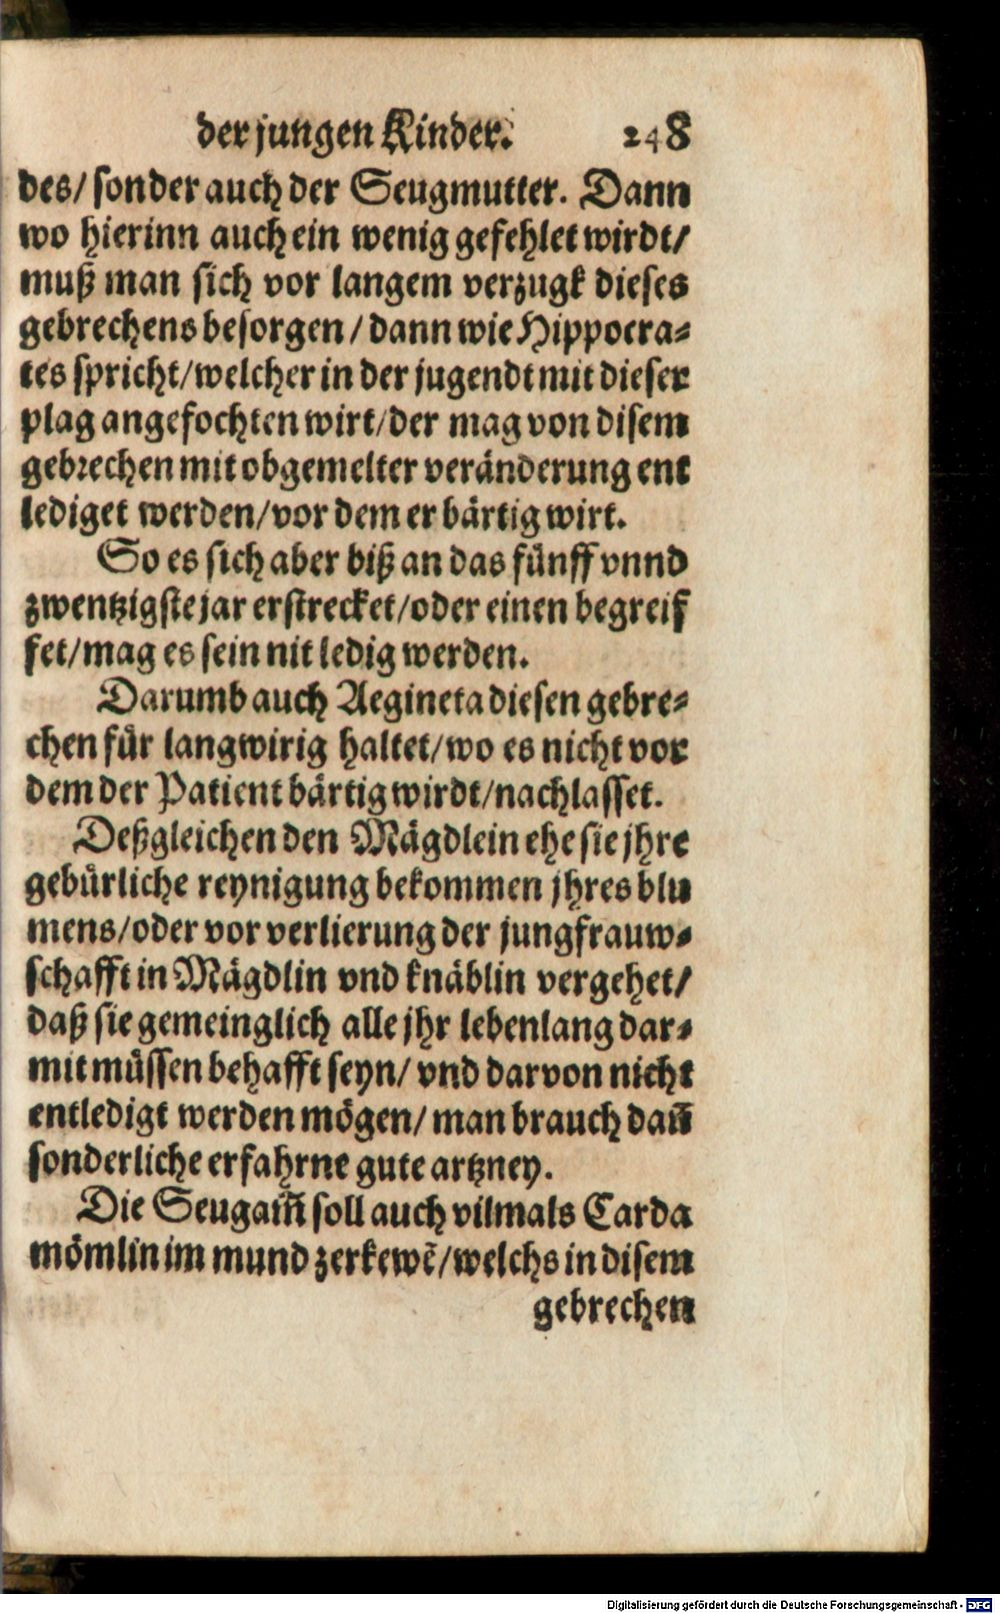 der jungen Kinder. 248
des/ sonder auch der Seugmutter. Dann
wo hierinn auch ein wenig gefehlet wirdt/
muß man sich vor langem verzugk dieses
gebrechens besorgen / dann wie Hippocra-
tes spricht/welcher in der jugendt mit dieser
plag angefochten wirt/der mag von disem
gebrechen mit obgemelter veränderung ent
lediget werden/vor dem er bärtig wirt.
So es sich aber biß an das fünff vnnd
zwentzigste jar erstrecket/oder einen begreif
fet/mag es sein nit ledig werden.
Darumb auch Aegineta diesen gebre-
chen für langwirig haltet/wo es nicht vor
dem der Patient bärtig wirdt/nachlasset.
Deßgleichen den Mägdlein ehe sie jhre
gebürliche reynigung bekommen jhres blu
mens/oder vor verlierung der jungfrauw-
schafft in Mägdlin vnd knäblin vergehet/
daß sie gemeinglich alle jhr lebenlang dar-
mit müssen behafft seyn/ vnd darvon nicht
entledigt werden mögen/ man brauch dañ
sonderliche erfahrne gute artzney.
Die Seugam̃ soll auch vilmals Carda
mömlin im mund zerkewẽ/welchs in disem
gebrechen
Digitalisierung gefördert durch die Deutsche Forschungsgemeinschaft - DFG